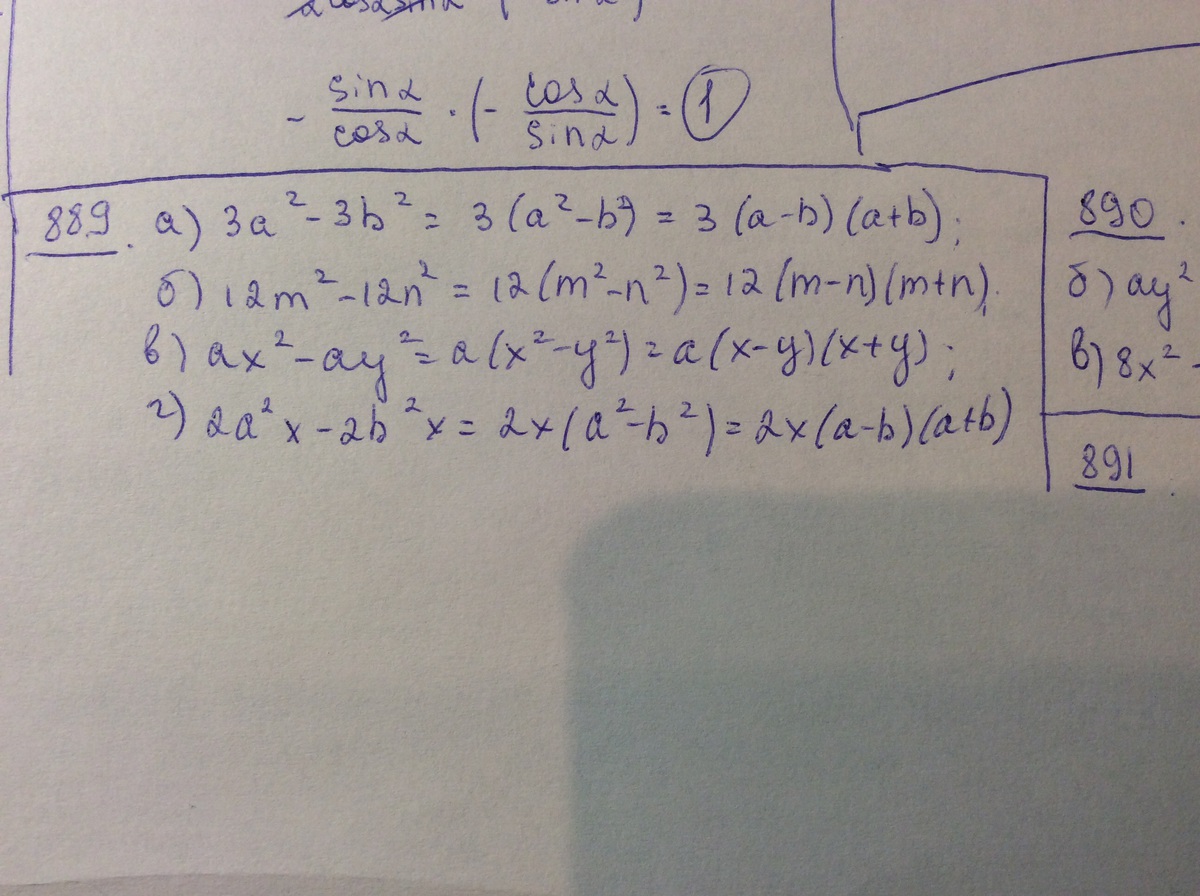 - sinα/cosα · (- cosα/sinα) = 1
889. а) 3a² - 3b² = 3(a² - b²) = 3(a-b)(a+b);
б) 12m² - 12n² = 12(m² - n²) = 12(m-n)(m+n).
в) ax² - ay² = a(x² - y²) = a(x-y)(x+y);
г) 2a²x - 2b²x = 2x(a² - b²) = 2x(a-b)(a+b)
890.
б) ay²
в) 8x² -
891.